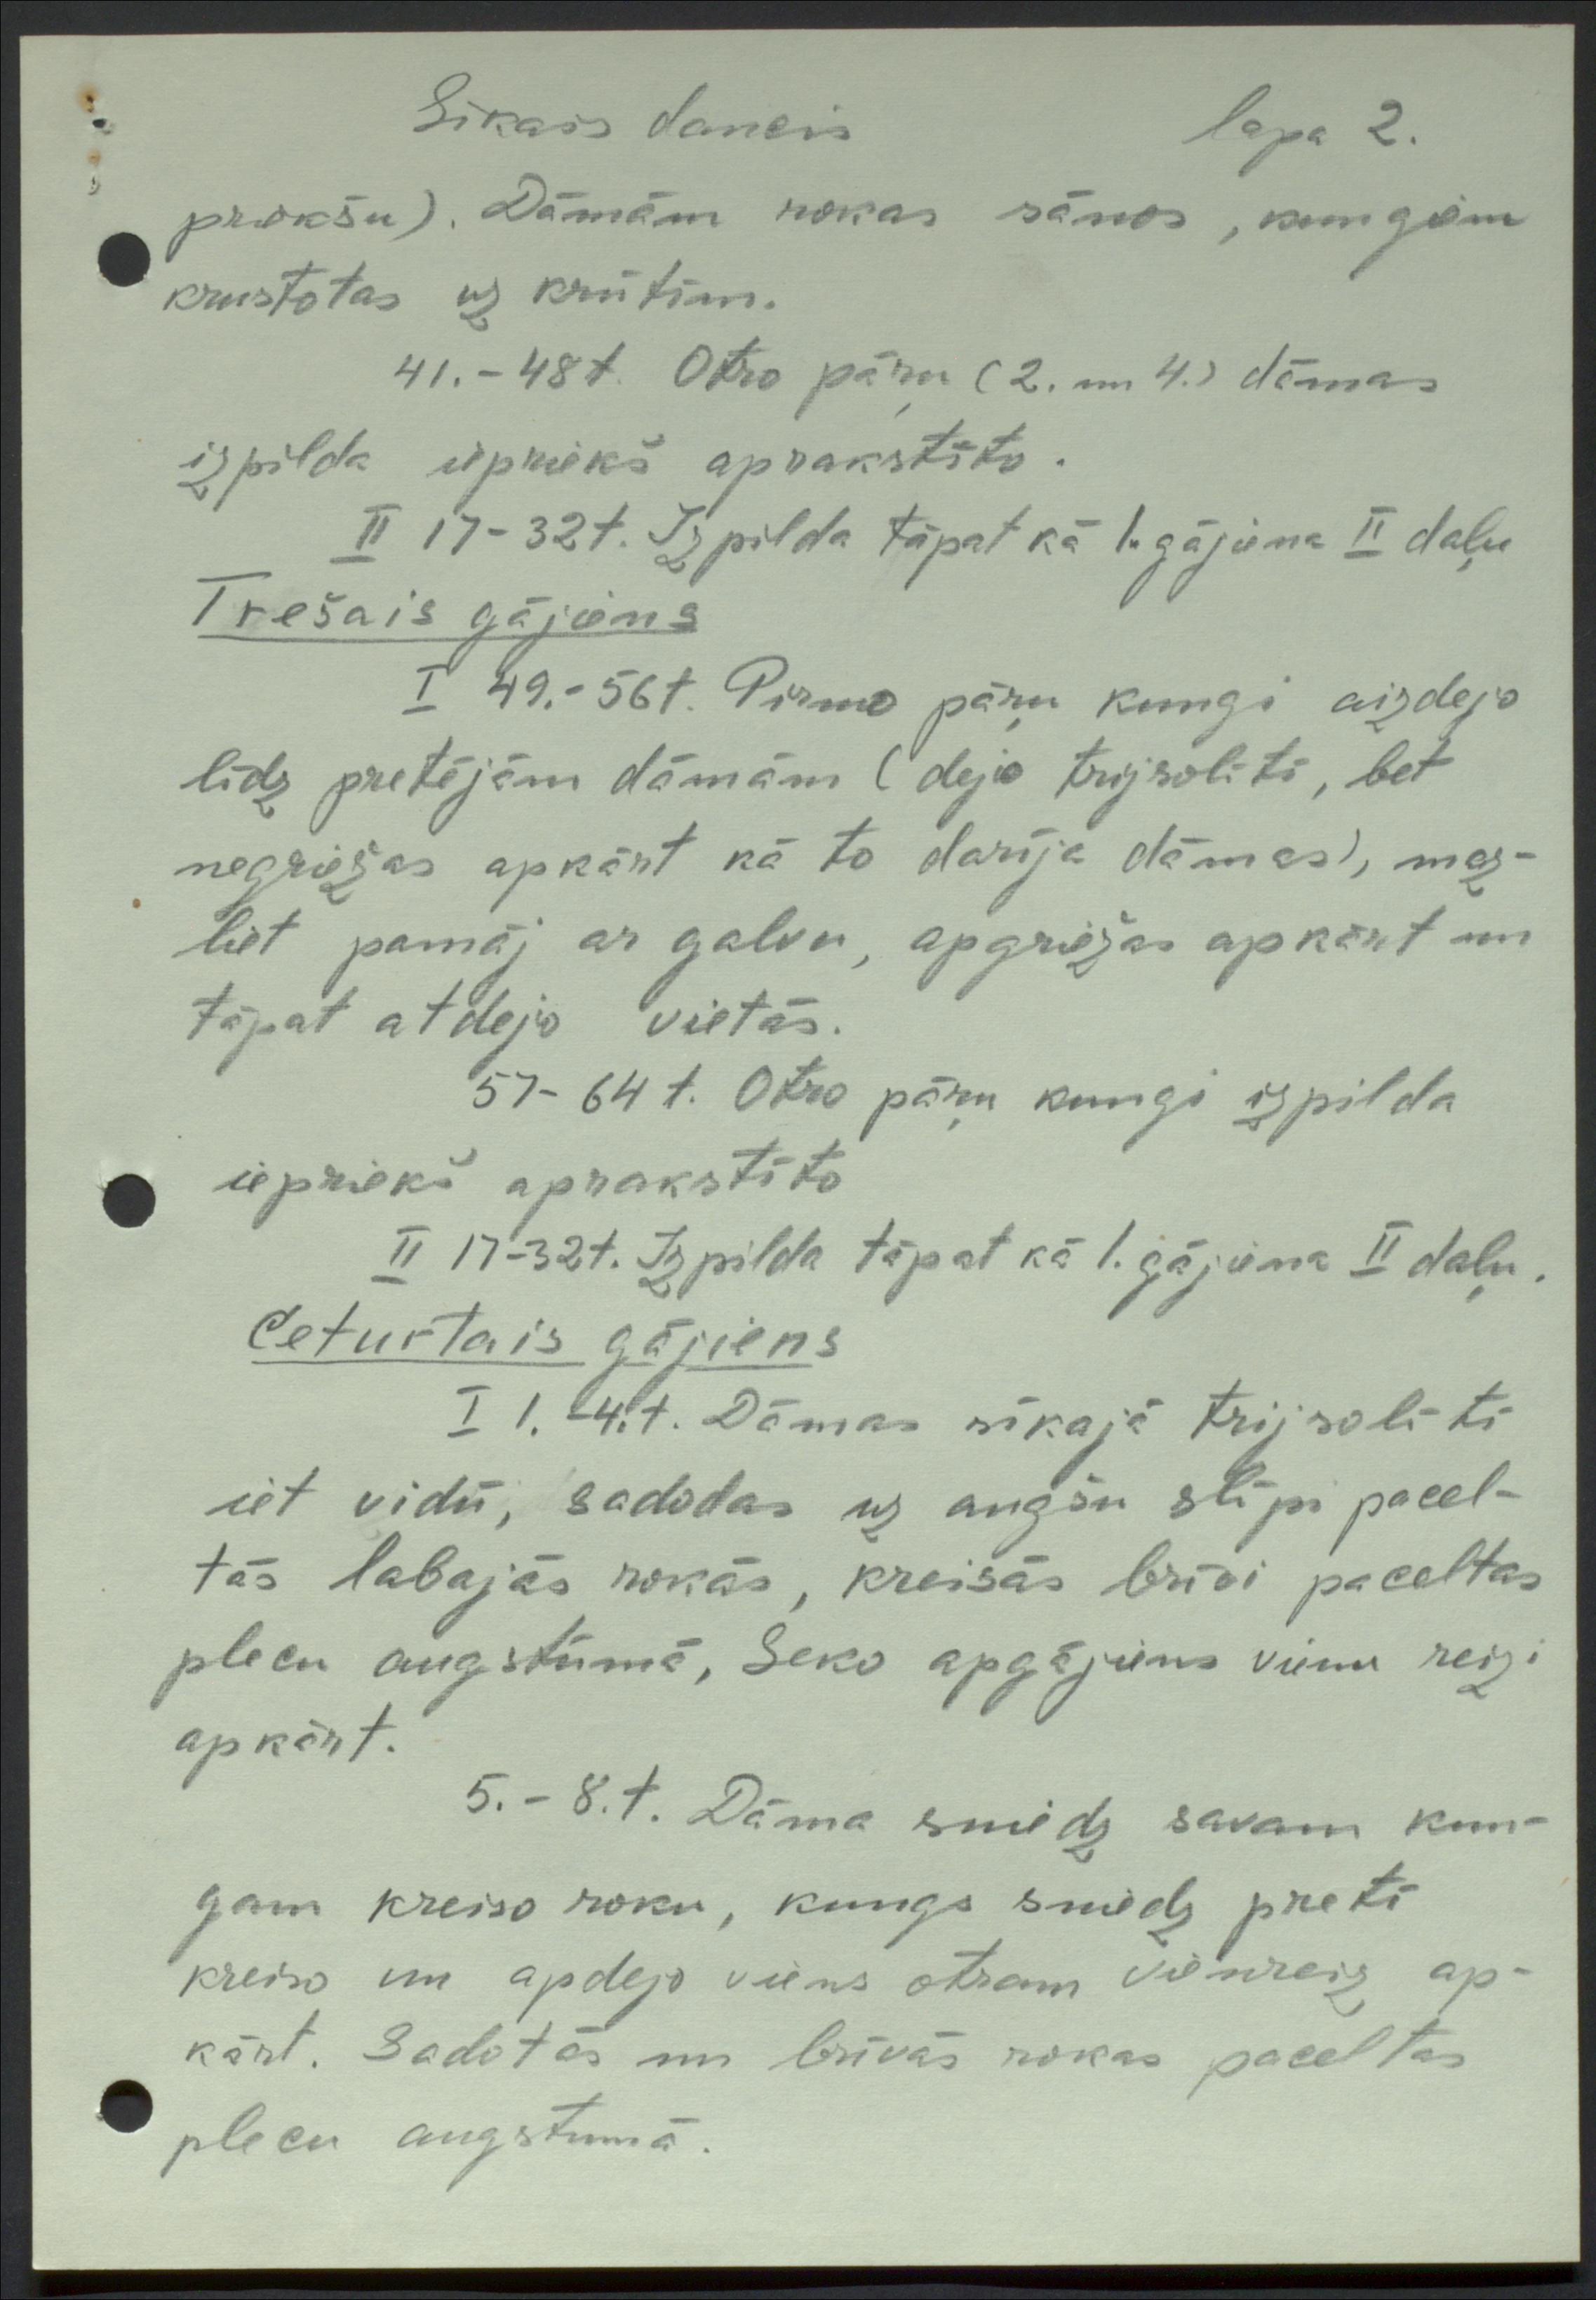 Sīkais dancis lapa 2.
prokšu). Dāmām rokas sānos, kungiem
krustotas uz krūtīm.
41.-48 t. Otro pāŗu (2. un 4.) dāmas
izpilda iepriekš aprakstīto.
II 17-32 t. Izpilda tāpat kā 1. gājiena II daļu
Trešais gājiens
I 49.-56 t. Pirmo pāŗu kungi aizdejo
līdz pretējām dāmām (dejo trijsolītī, bet
negriežas apkārt kā to darīja dāmas), maz-
liet pamāj ar galvu, apgriežas apkārt un
tāpat atdejo vietās.
57-64 t. Otro pāŗu kungi izpilda
iepriekš aprakstīto
II 17-32 t. Izpilda tāpat kā 1. gājiena II daļu.
Ceturtais gājiens
I 1.-4. t. Dāmas sīkajā trijsolītī
iet vidū, sadodas uz augšu slīpi pacel-
tās labajās rokās, kreisās brīvi paceltas
plecu augstumā, Seko apgājiens vienu reizi
apkārt.
5.-8. t. Dāma sniedz savam kun-
gam kreiso roku, kungs sniedz pretī
kreiso un apdejo viens otram vienreiz ap-
kārt. Sadotās un brīvās rokas paceltas
plecu augstumā.